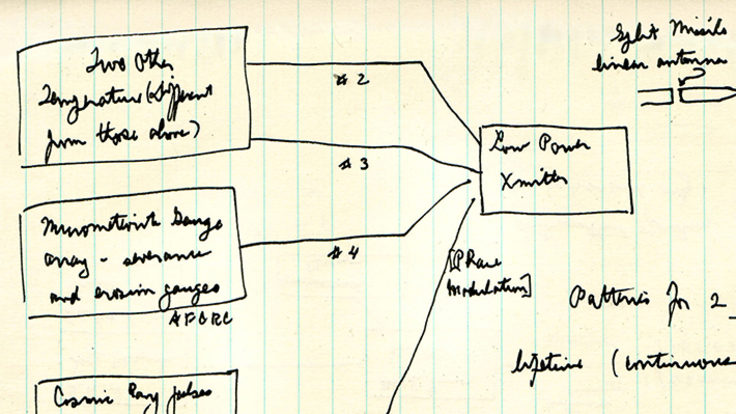 Two Other
Temperature (different
from those above)
# 2
# 3
Micrometeorite Gauge
array - severance
and erosion gauges
AFCRC
# 4
Cosmic Ray pulses
Low Power
Xmitter
[Phase
Modulation]
Split Missile
linear antenna
Batteries for 2
lifetime (continuous